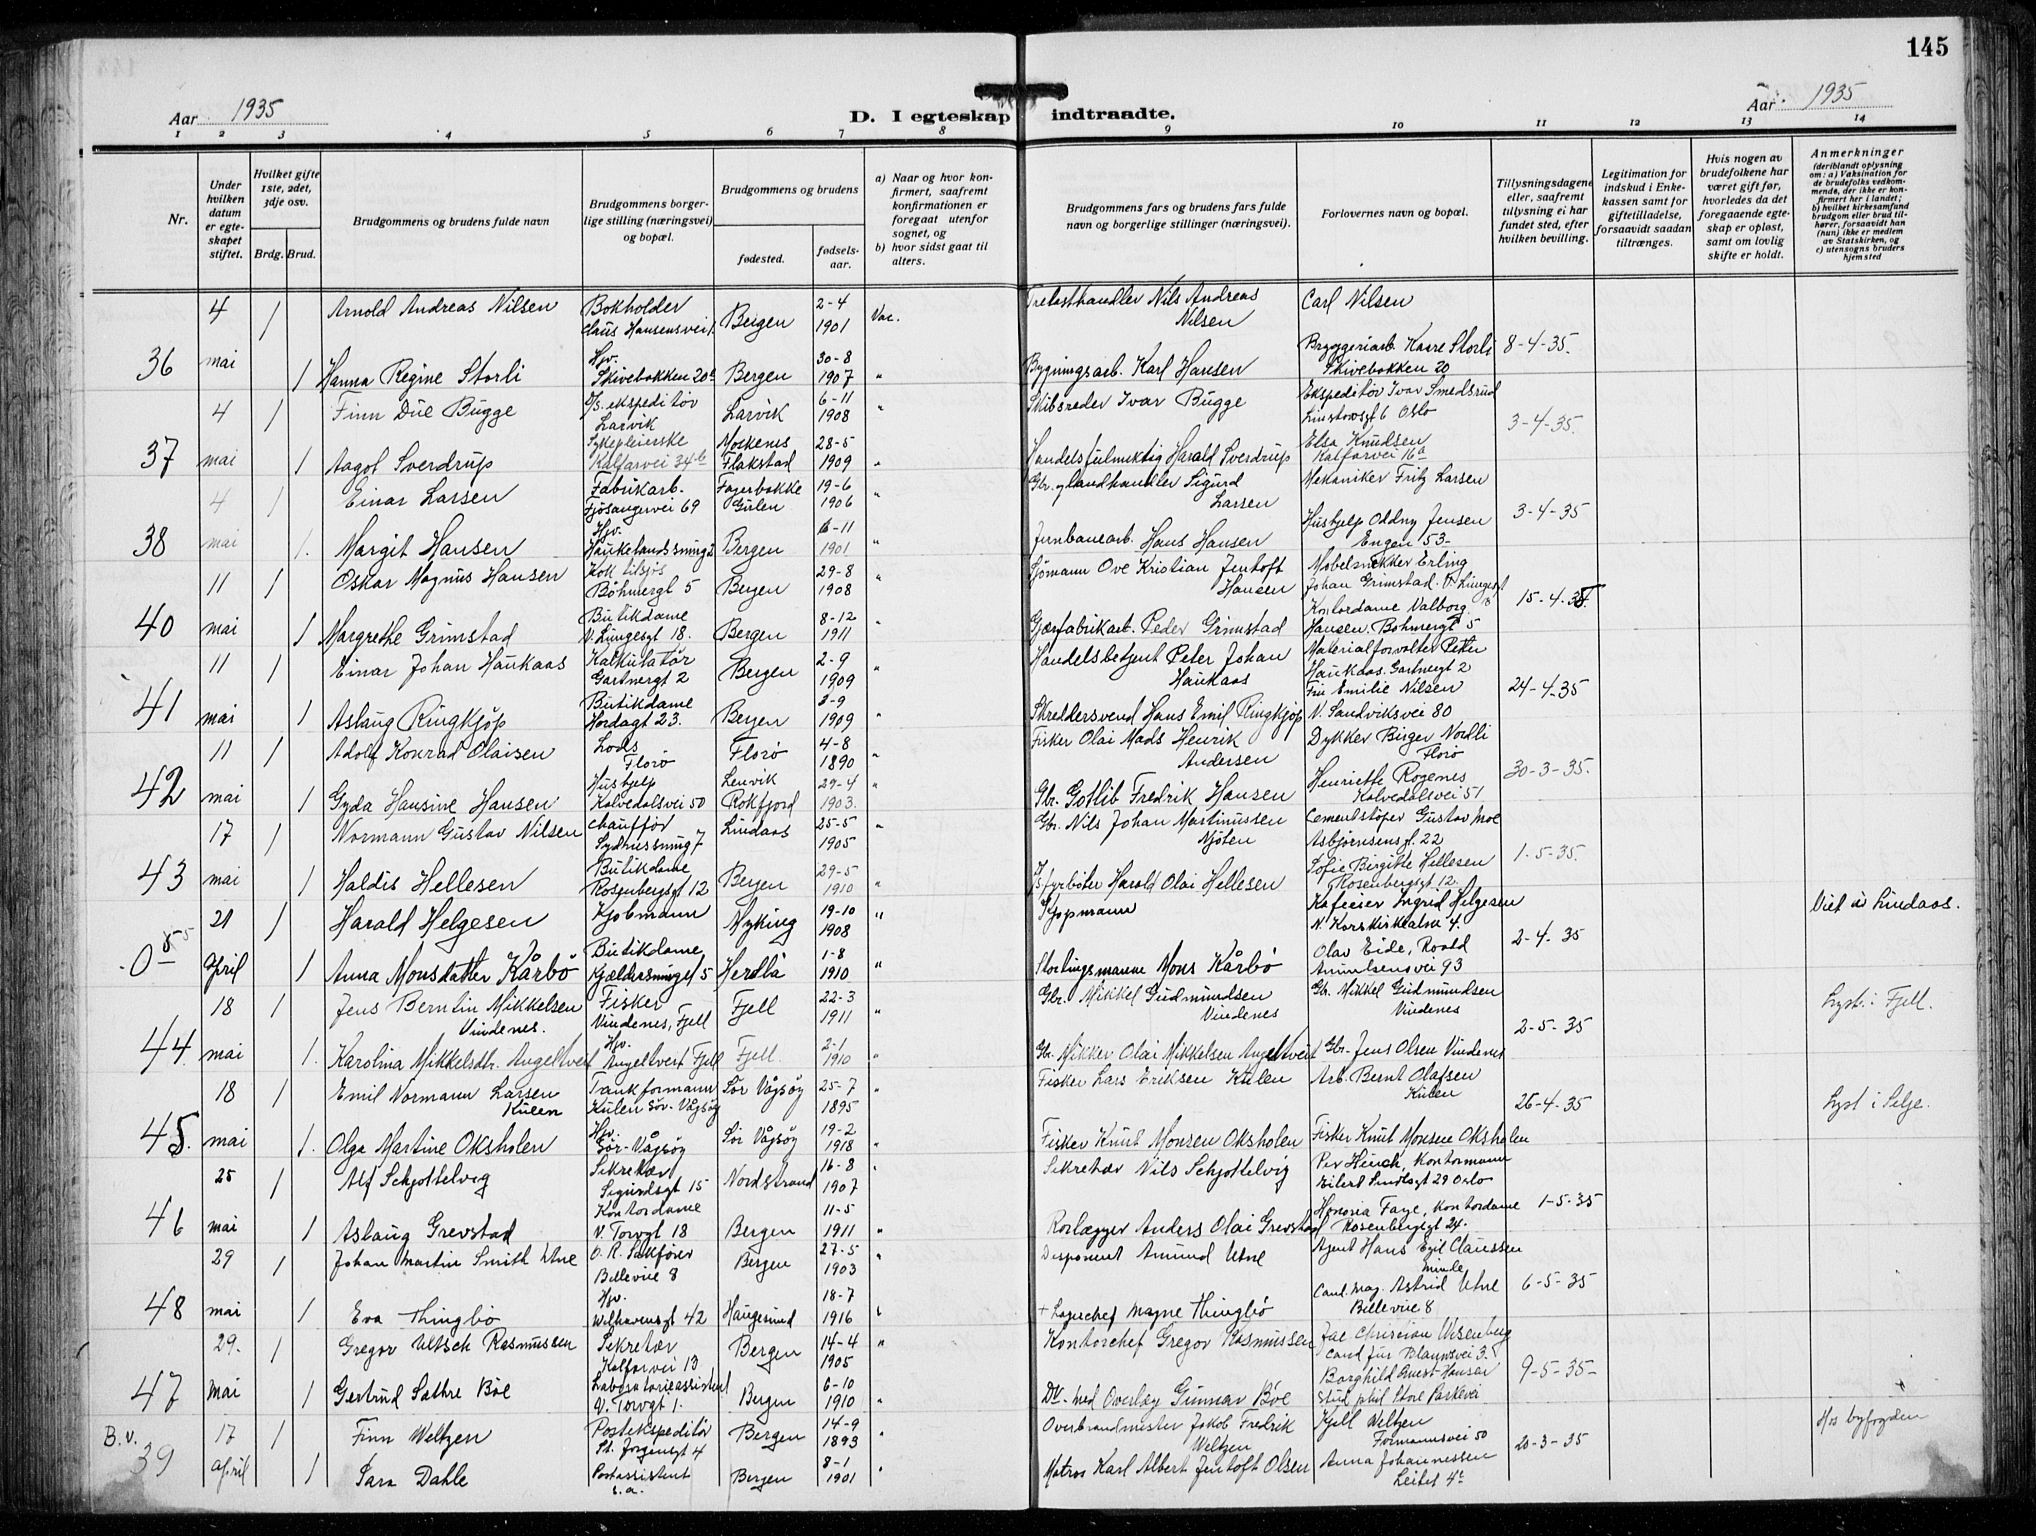 145
Aar 1935
D. I egteskap indtraadte.
Aar 1935
1 2 3 4 5 6 7 8 9 10 11 12 13 14
Nr.
Under hvilken datum er egteskapet stiftet.
Hvilket gifte 1ste, 2det, 3dje osv.
Brdg. Brud.
Brudgommens og brudens fulde navn
Brudgommens borgerlige stilling (næringsvei) og bopæl.
Brudgommens og brudens
fødested.
fødselsaar.
a) Naar og hvor konfirmert, saafremt konfirmationen er foregaat utenfor sognet, og
b) hvor sidst gaat til alters.
Brudgommens fars og brudens fars fulde navn og borgerlige stillinger (næringsvei).
Forlovernes navn og bopæl.
Tillysningsdagene eller, saafremt tillysning ei har fundet sted, efter hvilken bevilling.
Legitimation for indskud i Enkekassen samt for giftetilladelse, forsaavidt saadan tiltrænges.
Hvis nogen av brudefolkene har været gift før, hvorledes da det foregaaende egteskap er opløst, samt om lovlig skifte er holdt.
Anmerkninger
(deriblandt oplysning om: a) Vaksination for de brudefolks vedkommende, der ikke er konfirmert her i landet; b) hvilket kirkesamfund brudgom eller brud tilhører, forsaavidt han (hun) ikke er medlem av Statskirken, og c) utensogns bruders hjemsted
36 4 mai 1 Arnold Andreas Nilsen Bokholder Claus Hansensvei Bergen 2-4 1901 Vac. Trelasthandler Nils Andreas Nilsen Carl Nilsen 8-4-35.
1 Hanna Regine Storli Hjv. Skivebakken 20 Bergen 30-8 1907 " Bygningsarb. Karl Hansen Bryggeriarb. Kaare Storli Skivebakken 20
37 4 mai 1 Finn Due Bugge D/s. ekspeditør Larvik Larvik 6-11 1908 " Skibsreder Ivar Bugge Ekspeditør Ivar Smedsrud Linstowsgt 6 Oslo 3-4-35.
1 Aagot Sverdrup Sykepleierske Kalfarvei 34b Moskenes Flakstad 28-5 1909 " Handelsfulmektig Harald Sverdrup Elsa Knudsen Kalfarvei 16a
38 4 mai 1 Einar Larsen Fabrikarb. Fjøsangervei 69 Fagerbakke Gulen 19-6 1906 " Gbr. og landhandler Sigurd Larsen Mekaniker Fritz Larsen 3-4-35
1. Margit Hansen Hjv. Haukelandssmug Bergen 6-11 1901 " Jernbanearb. Hans Hansen Hushjelp Oddny Jensen Engen 53-
40 11 mai 1 Oskar Magnus Hansen Kok tilsjøs Bøhmergt 5 Bergen 29-8 1908 " Sjømann Ove Kristian Jentoft Hansen Møbelsnekker Erling Johan Grimstad. V. Lingesgt 18 15-4-35.
1 Margrethe Grimstad Butikdame V. Lingesgt 18. Bergen 8-12 1911 " Gjærfabrikarb. Peder Grimstad Kontordame Valborg Hansen. Bøhmergt 5
41 11 mai 1 Einar Johan Haukaas Kalkulatør Gartnergt 2 Bergen 2-9 1909 " Handelsbetjent Peter Johan Haukaas Materialforvalter Petter Haukaas. Gartnergt 2 24-4-35
1 Aslaug Ringkjøp Butikdame Hordagt 23. Bergen 2-9 1909 " Skreddersvend Hans Emil Ringkjøp Fru Emilie Nilsen N. Sandviksvei 80
42 11 mai 1 Adolf Konrad Olaisen Lods Florø Florø 4-8 1890 " Fisker Olai Mads Henrik Andersen Dykker Birger Nordli Florø 30-3-35.
1 Gyda Hansine Hansen Hushjelp Kalvedalsvei 50 Lenvik Rokfjord 29-4 1903. " Gbr. Gotlib Fredrik Hansen Henriette Rogenes Kalvedalsvei 51
43 17 mai 1 Normann Gustav Nilsen Chauffør Sydnessmug 7 Lindaas 25-5 1905 " Gbr. Nils Johan Martinussen Njøten Cementstøper Gustav Moe Asbjørnsensgt. 22 1-5-35.
1 Haldis Hellesen Butikdame Rosenbergsgt 12 Bergen 29-5 1910 " Fyrbøter Harald Olai Hellesen Sofie Birgitte Hellesen Rosenbergsgt 12.
05 21 April 1 Harald Helgesen Kjøbmann Myking 19-10 1908 " Kjøpmann Kafeeier Ingrid Helgesen N. Korskirkealm 4. 2-4-35 Viet i Lindaas.
1 Anna Monsdatter Kårbø Butikdame Kjellersmuget 5 Herdla 1-8 1910 " Stortingsmann Mons Kårbø Olav Eide, Roald Amundsensvei 93
44. 18 mai 1 Jens Berntin Mikkelsen Vindenes. Fisker Vindenes, Fjell Fjell 22-3 1911 " Gbr. Mikkel Gudmundsen Vindenes Gbr. Mikkel Gudmundsen Vindenes 2-5-35 Lyst. i Fjell.
1. Karolina Mikkelsdtr. Angeltveit Hjv. Angeltveit Fjell Fjell. 2-1 1910 " Gbr. Mikkel Olai Mikkelsen Angeltveit Gbr. Jens Olsen Vindenes
45. 18 mai 1 Emil Normann Larsen Kulen Tankformann Kulen Sør-Vågsøy Sør Vågsøy 25-7 1895 " Fisker Lars Eriksen Kulen Arb. Bernt Olafsen Kulen 26-4-35 Lyst i Selje.
1. Olga Martine Oksholen Hjv. Sør-Vågsøy Sør Vågsøy 19-2 1918 " Fisker Knut Monsen Oksholen Fisker Knut Monsen Oksholen
46 25 mai 1 Alf Schjøttelvig Sekretær Sigurdsgt 15 Nordstrand 16-8 1907 " Sekretær Nils Schjøttelvig Per Hinch, Kontormann Eilert Sundtsgt 29 Oslo 1-5-35
1 Aslaug Grevstad Kontordame V. Torvgt 18 Bergen 11-5 1911 " Rørlægger Anders Olai Grevstad Honoria Faye, Kontordame Rosenbergsgt 24.
48 29 mai 1 Johan Martin Smith Utne O.R. Sakfører Bellevue 8 Bergen 27-5 1903 " Disponent Amund Utne Agent Hans Egil Claussen Minde 6-5-35
1 Eva Thingbø Hjv. Welhavensgt 42 Haugesund 18-7 1916 " + Lagerchef Magne Thingbø Cand. mag. Astrid Utne Bellevue 8
47 29. Mai 1 Gregor Ultsch Rasmussen Sekretær Kalfarvei 13 Bergen 14-4 1905 " Kontorchef Gregor Rasmussen Jac Christian Wesenberg cand jur Blaauwsvei 3. 9-5-35
1 Gertrud Sathre Bøe Laboratorieassistent V. Torvgt 1. Bergen 6-10 1910 " Dr. med Overlæg Gunnar Bøe Borghild Hansen stud. phil Store Parkvei
B.v. 39 17 april 1 Finn Weltzen Postekspeditør St. Jørgensgt 4 Bergen 14-9 1893 " Overbrandmester Jakob Fredrik Weltzen Kjell Weltzen Formannsvei 50 20-3-35 Hos byfogden
1 Sara Dahle Postassistent s.a. Bergen 8-1 1901 " Matros Karl Albert Jentoft Olsen Anna Johannessen Leitet 4